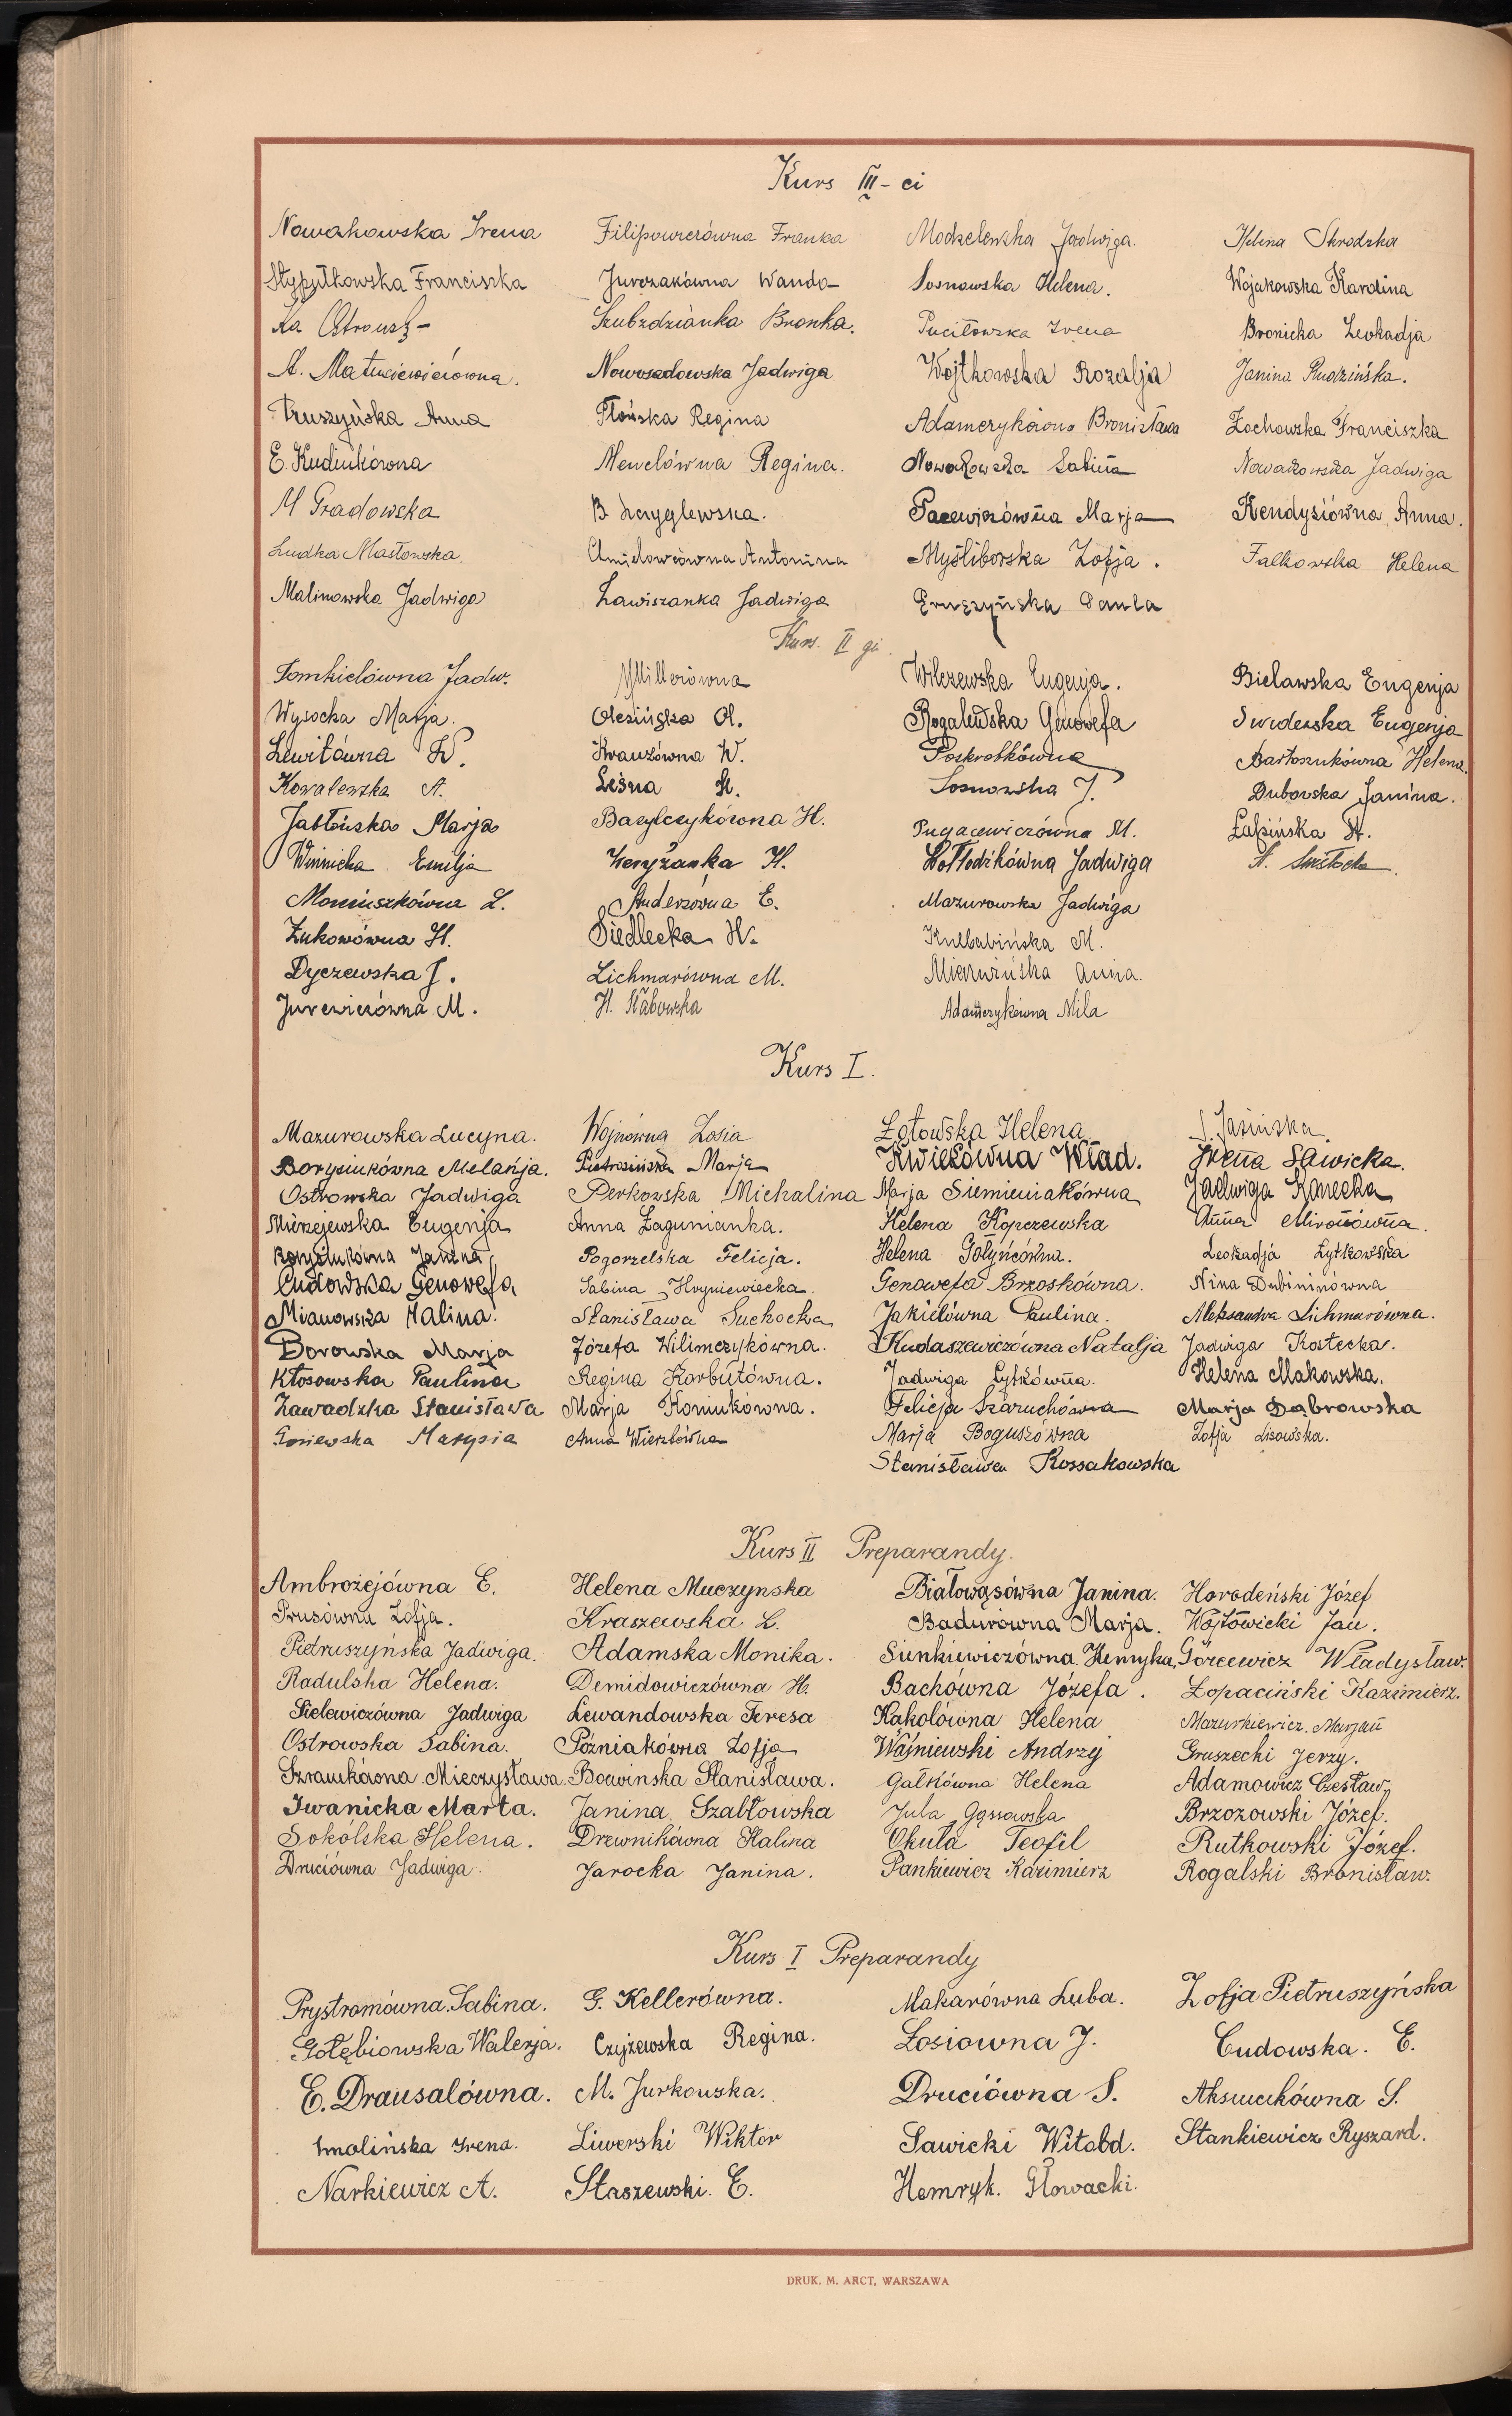 Kurs III-ci
Nowakowska Irena
Stypułkowska Franciszka
A. Matusiewiczówna.
Truszyńska Anna
E. Kudiukówna
M Gradowska
Ludka Masłowska.
Malinowska Jadwiga
Filipowiczówna Franka
Jurczakówna Wanda
Szubzdzianka Bronka.
Nowosadowska Jadwiga
Płońska Regina
Menclówna Regina.
B. Szczyglewska.
Antonina
Zawiszanka Jadwiga
Modzelewska Jadwiga.
Sosnowska Helena.
Puciłowska Irena
Wojtkowska Rozalja
Adamczykówna Bronisława
Nowakowska Sabina
Pacewiczówna Marja
Myśliborska Zofja.
Gruszyńska Paula
Helena Skrodzka
Wojukowska Karolina
Bronicka Leokadja
Janina Rudzińska.
Żochowska Franciszka
Nowakowska Jadwiga
Kendysiówna Anna.
Falkowska Helena
Kurs. II gi.
Tomkielówna Jadw.
Wysocka Marja.
Lewitówna W.
Kowalewska A.
Jabłońska Marja
Winnicka Emilja
Moniuszkówna L.
Żukowówna H.
Dyczewska J.
Jurewiczówna M.
Millerówna
Olesińska Ol.
Krauzówna W.
Leśna H.
Bazylczykówna H.
Zeryżanka H.
Andersówna E.
Siedlecka W.
Lichmarówna M.
H. Słabowska
Wilczewska Eugenja.
Rogalewska Genowefa
Poskrobkówna
Sosnowska J.
Pugacewiczówna M.
Hołłodźkówna Jadwiga
Mazurowska Jadwiga
Kulbabińska M.
Mierwińska Anna.
Adamczykówna Nila
Bielawska Eugenja
Swiderska Eugenja
Bartoszukówna Helena.
Dubowska Janina.
Łapińska A.
Kurs I.
Mazurowska Lucyna.
Borysiukówna Melanja.
Ostrowska Jadwiga
Mierzejewska Eugenja
Borysiukówna Janina
Cudowska Genowefa
Mianowska Halina.
Borowska Marja
Kłosowska Paulina
Zawadzka Stanisława
Gniewska Marysia
Wojnówna Zosia
Pietrasińska Marja
Perkowska Michalina
Anna Zagunianka.
Pogorzelska Felicja.
Sabina Hryniewiecka.
Stanisława Suchocka
Józefa Wilimczykówna.
Regina Korbutówna.
Marja Koniukówna.
Anna Wierzbówna
Żotowska Helena
Kwiekówna Wład.
Marja Siemieniakówna
Helena Kopczewska
Helena Gołyńcówna.
Genowefa Brzoskówna.
Jakielówna Paulina.
Kudaszewiczówna Natalja
Jadwiga Łyśkówna.
Felicja Szaruchówna
Marja Boguszówna
Stanisława Kossakowska
J. Jasińska.
Irena Sawicka.
Jadwiga Konecka
Anna Mirońówna.
Leokadja Żytkowska
Nina Dubininówna
Aleksandra Lichmarówna.
Jadwiga Kostecka.
Helena Makowska.
Marja Dąbrowska
Zofja Lisowska.
Kurs II Preparandy.
Ambrożejówna E.
Prusówna Zofja.
Pietruszyńska Jadwiga.
Radulska Helena.
Sielewiczówna Jadwiga
Ostrowska Sabina.
Szramkówna Mieczysława.
Iwanicka Marta.
Sokólska Helena.
Druciówna Jadwiga.
Helena Muczynska
Kraszewska L.
Adamska Monika.
Demidowiczówna H.
Lewandowska Teresa
Późniakówna Zofja
Borwinska Stanisława.
Janina Szabłowska
Drewnikówna Halina
Jarocka Janina.
Białowąsówna Janina.
Badurówna Marja.
Sienkiewiczówna Henryka,
Bachówna Józefa.
Kąkolówna Helena
Waśniewski Andrzej
Gałkówna Helena
Jula Gąssowska
Okuła Teofil
Pankiewicz Kazimierz
Horodeński Józef
Wójtowicki Jan.
Górcewicz Władysław.
Łopaciński Kazimierz.
Mazurkiewicz. Marjan
Gruszecki Jerzy.
Adamowicz Czesław
Brzozowski Józef.
Rutkowski Józef.
Rogalski Bronisław.
Kurs I Preparandy
Prystromówna Sabina.
Gołębiowska Walerja.
E. Drausalówna.
Smolińska Irena.
Narkiewicz A.
G. Kellerówna.
Czyżewska Regina.
M. Jurkowska.
Liwerski Wiktor
Staszewski. E.
Makarówna Luba.
Łosiowna J.
Druciówna S.
Sawicki Witold.
Hemryk. Głowacki.
Zofja Pietruszyńska
Cudowska. E.
Aksiucikówna S.
Stankiewicz Ryszard.
DRUK. M. ARCT, WARSZAWA